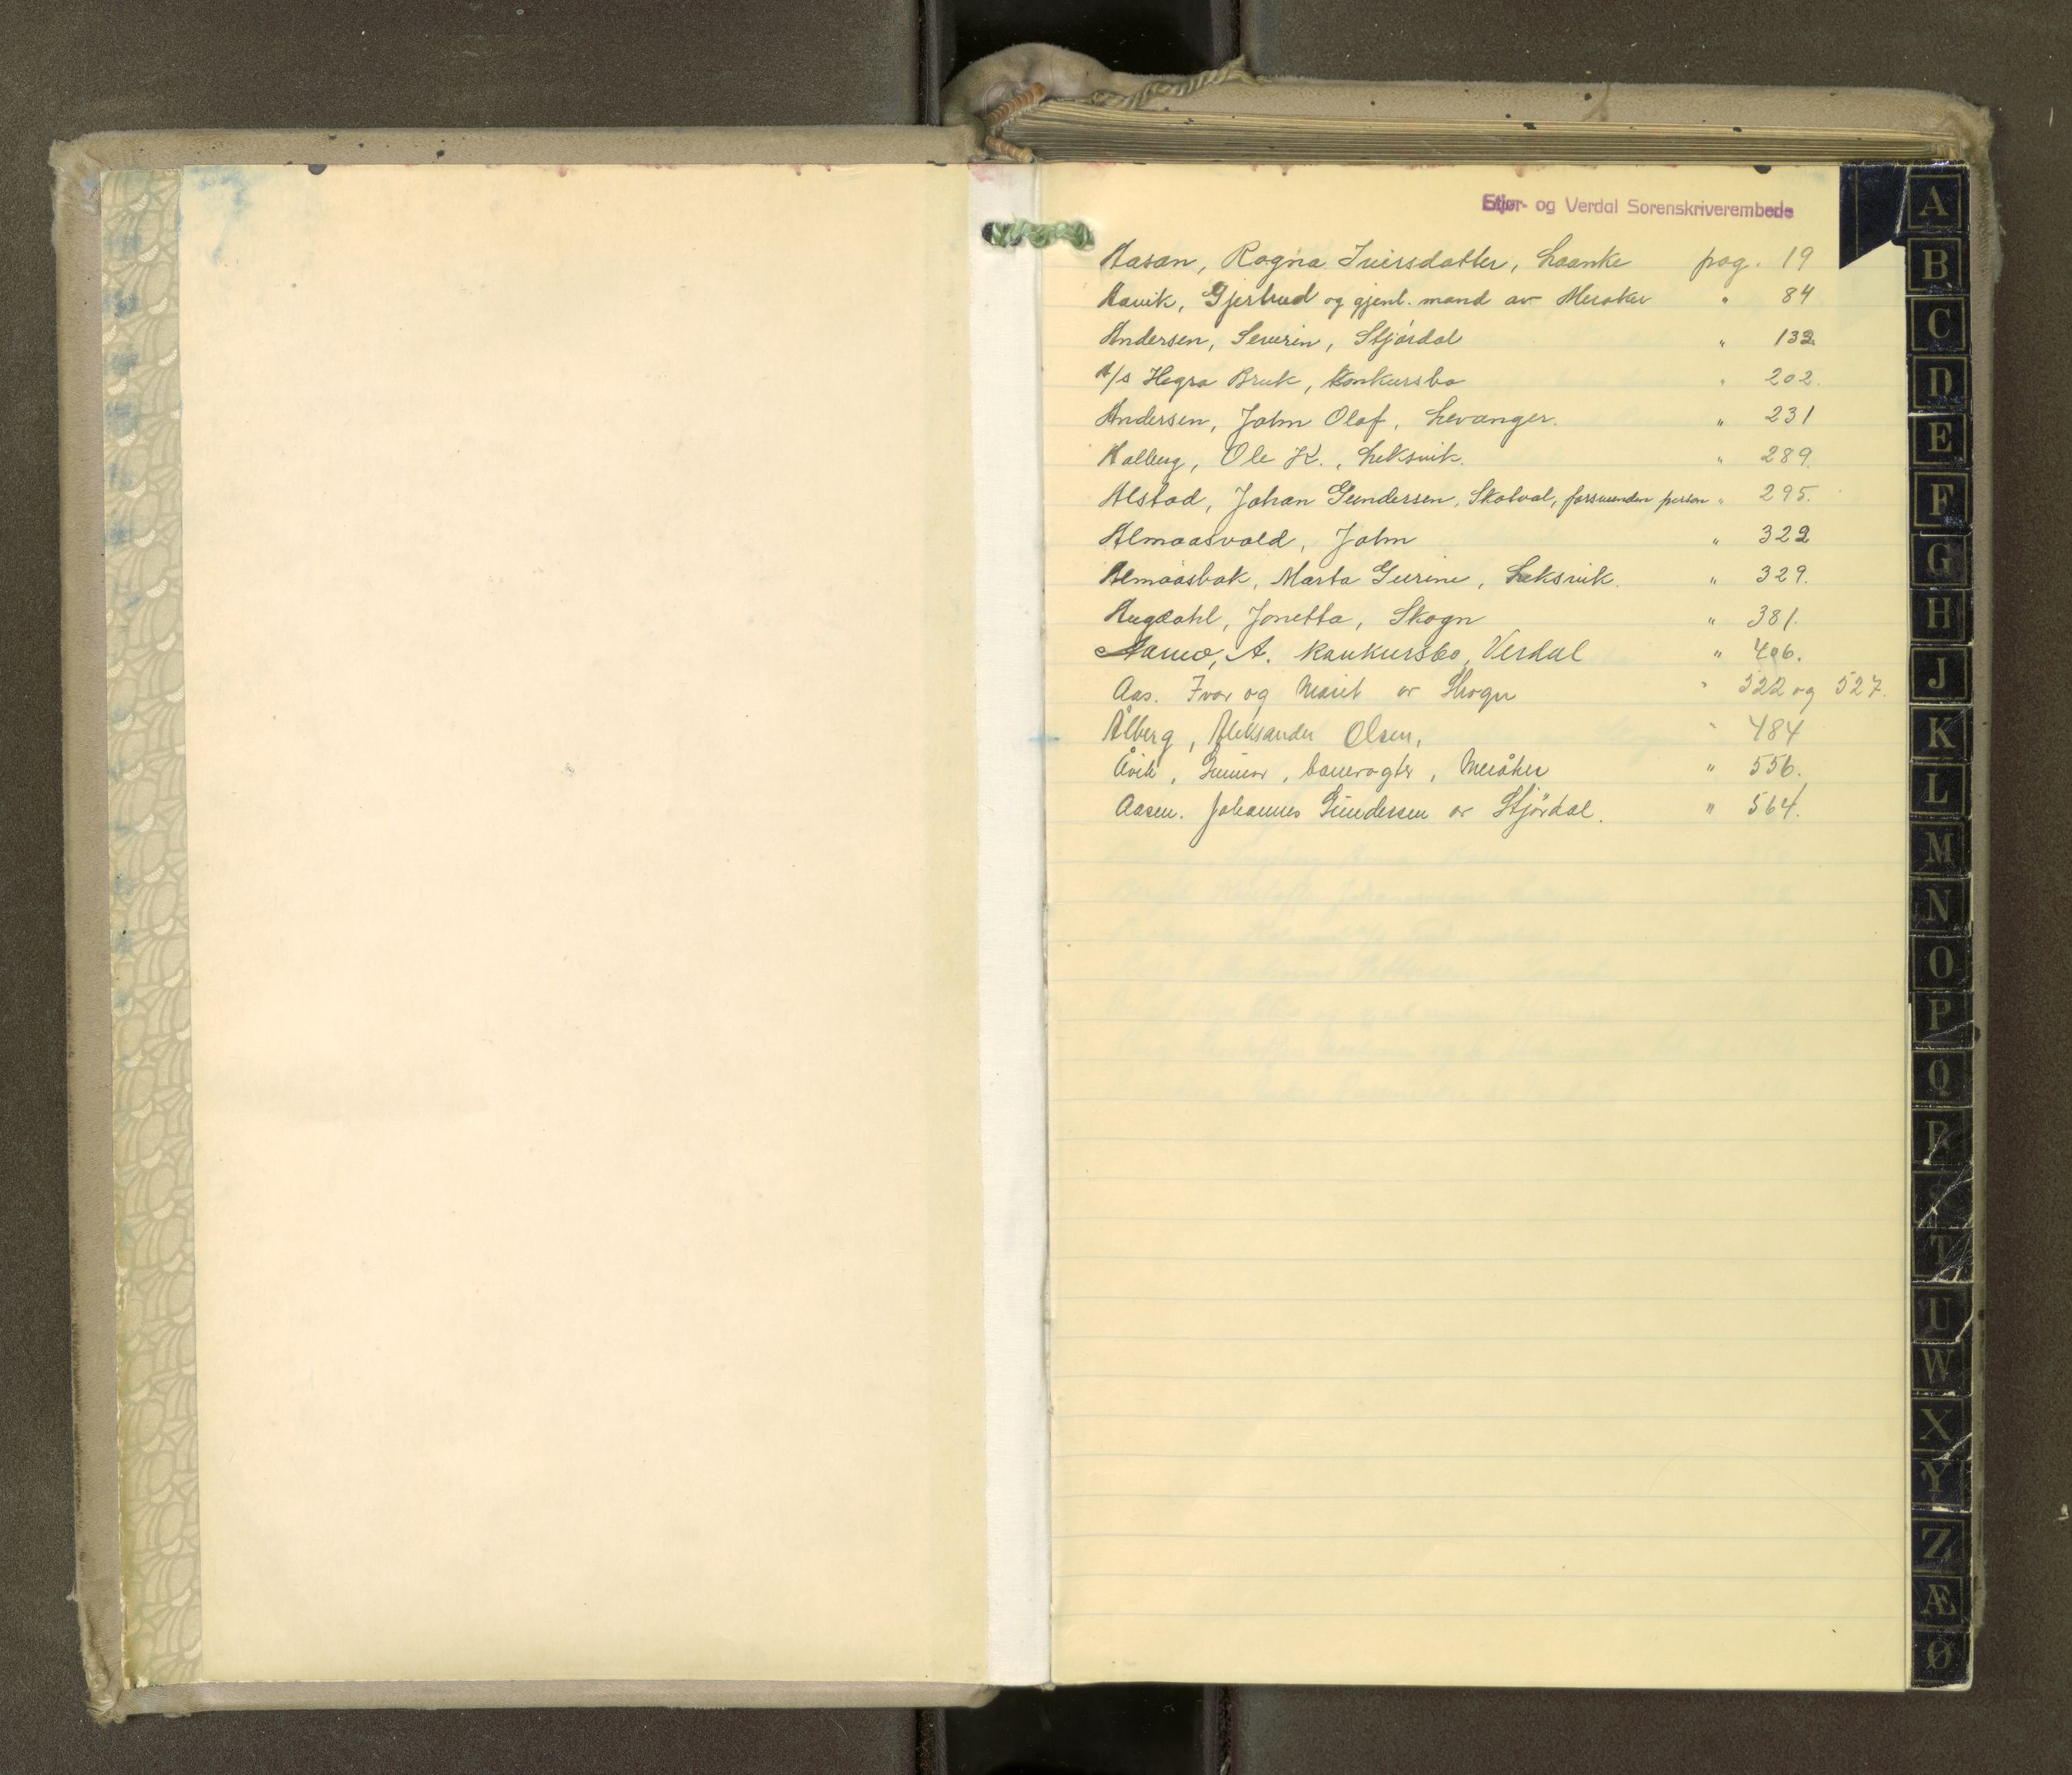 Stjør- og Verdal Sorenskriverembede
Aasan, Ragna Iversdatter, Laanke pag. 19
Aavik, Gjertrud og gjenl. mand av Meraker " 84
Andersen, Severin, Stjørdal " 132
A/s Hegra Bruk, konkursbo " 202.
Andersen, John Olaf, Levanger. " 231
Aalberg, Ole K., Leksvik. " 289.
Alstad, Johan Gundersen, Skatval, forsvunden person " 295.
Almaasvold, John " 322
Almaasbak, Marta Gurine, Leksvik. " 329.
Augdahl, Jonetta, Skogn " 381.
Aamo, A. konkursbo, Verdal " 406.
Aas. Ivar og Marit av Skogn " 522 og 527.
Ålberg, Aleksander Olsen, " 484
Åvik, Gunnar, banevogter, Meråker " 556.
Aasen. Johannes Gundersen av Stjørdal. " 564.
A
B
C
D
E
F
G
H
J
K
L
M
N
O
P
Q
R
S
T
U
W
X
Y
Z
Æ
Ø